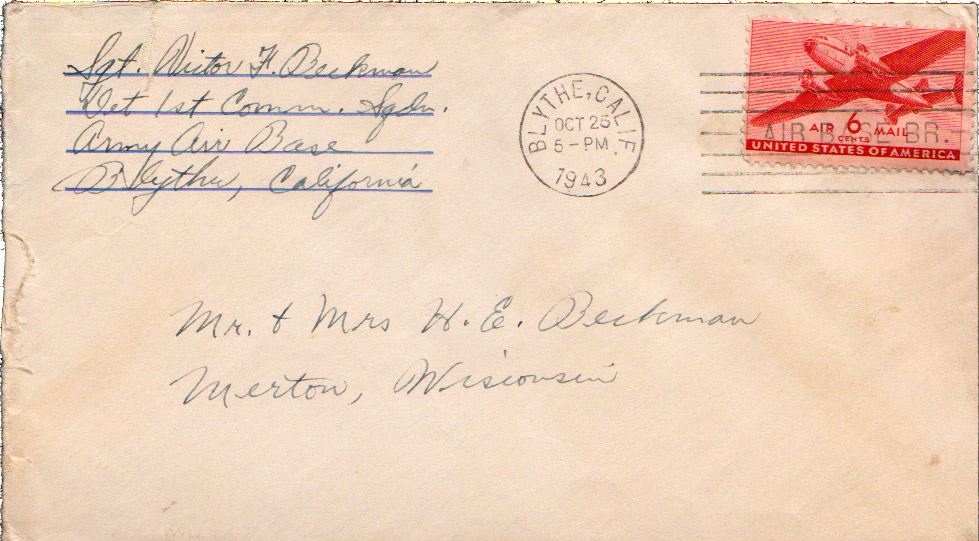 Sgt. Victor F. Beekman
Det 1st Comm. Sqdn.
Army Air Base
Blythe, California
BLYTHE, CALIF.
OCT 25
5-PM
1943
AIR BASE BR.
AIR 6 MAIL
CENTS
UNITED STATES OF AMERICA
Mr. & Mrs H. E. Beekman
Merton, Wisconsin